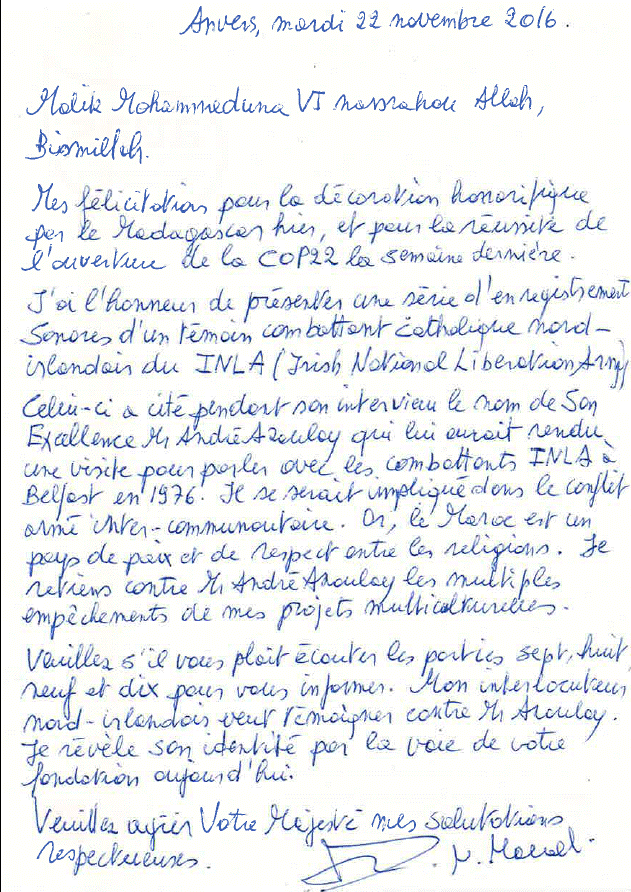 Anvers, mardi 22 novembre 2016.
Malik Mohammeduna VI nassrahou Allah,
Bismillah.
Mes félicitations pour la décoration honorifique
par le Madagascar hier, et pour la réussite de
l'ouverture de la COP22 la semaine dernière.
J'ai l'honneur de présenter une série d'enregistrement
Sonores d'un témoin combattant catholique nord-
irlandais du INLA (Irish National Liberation Army)
Celui-ci a cité pendant son interview le nom de Son
Excellence Mr André Azoulay qui lui aurait rendu
une visite pour parler avec les combattants INLA à
Belfast en 1976. Il se serait impliqué dans le conflit
armé inter-communautaire. Or, le Maroc est un
pays de paix et de respect entre les religions. Je
retiens contre Mr André Azoulay les multiples
empêchements de mes projets multiculturelles.
Veuillez s'il vous plaît écouter les parties sept, huit,
neuf et dix pour vous informer. Mon interlocuteur
nord-irlandais veut témoigner contre Mr Azoulay.
Je révèle son identité par la voie de votre
fondation aujourd'hui.
Veuillez agréer Votre Majesté mes salutations
respectueuses.